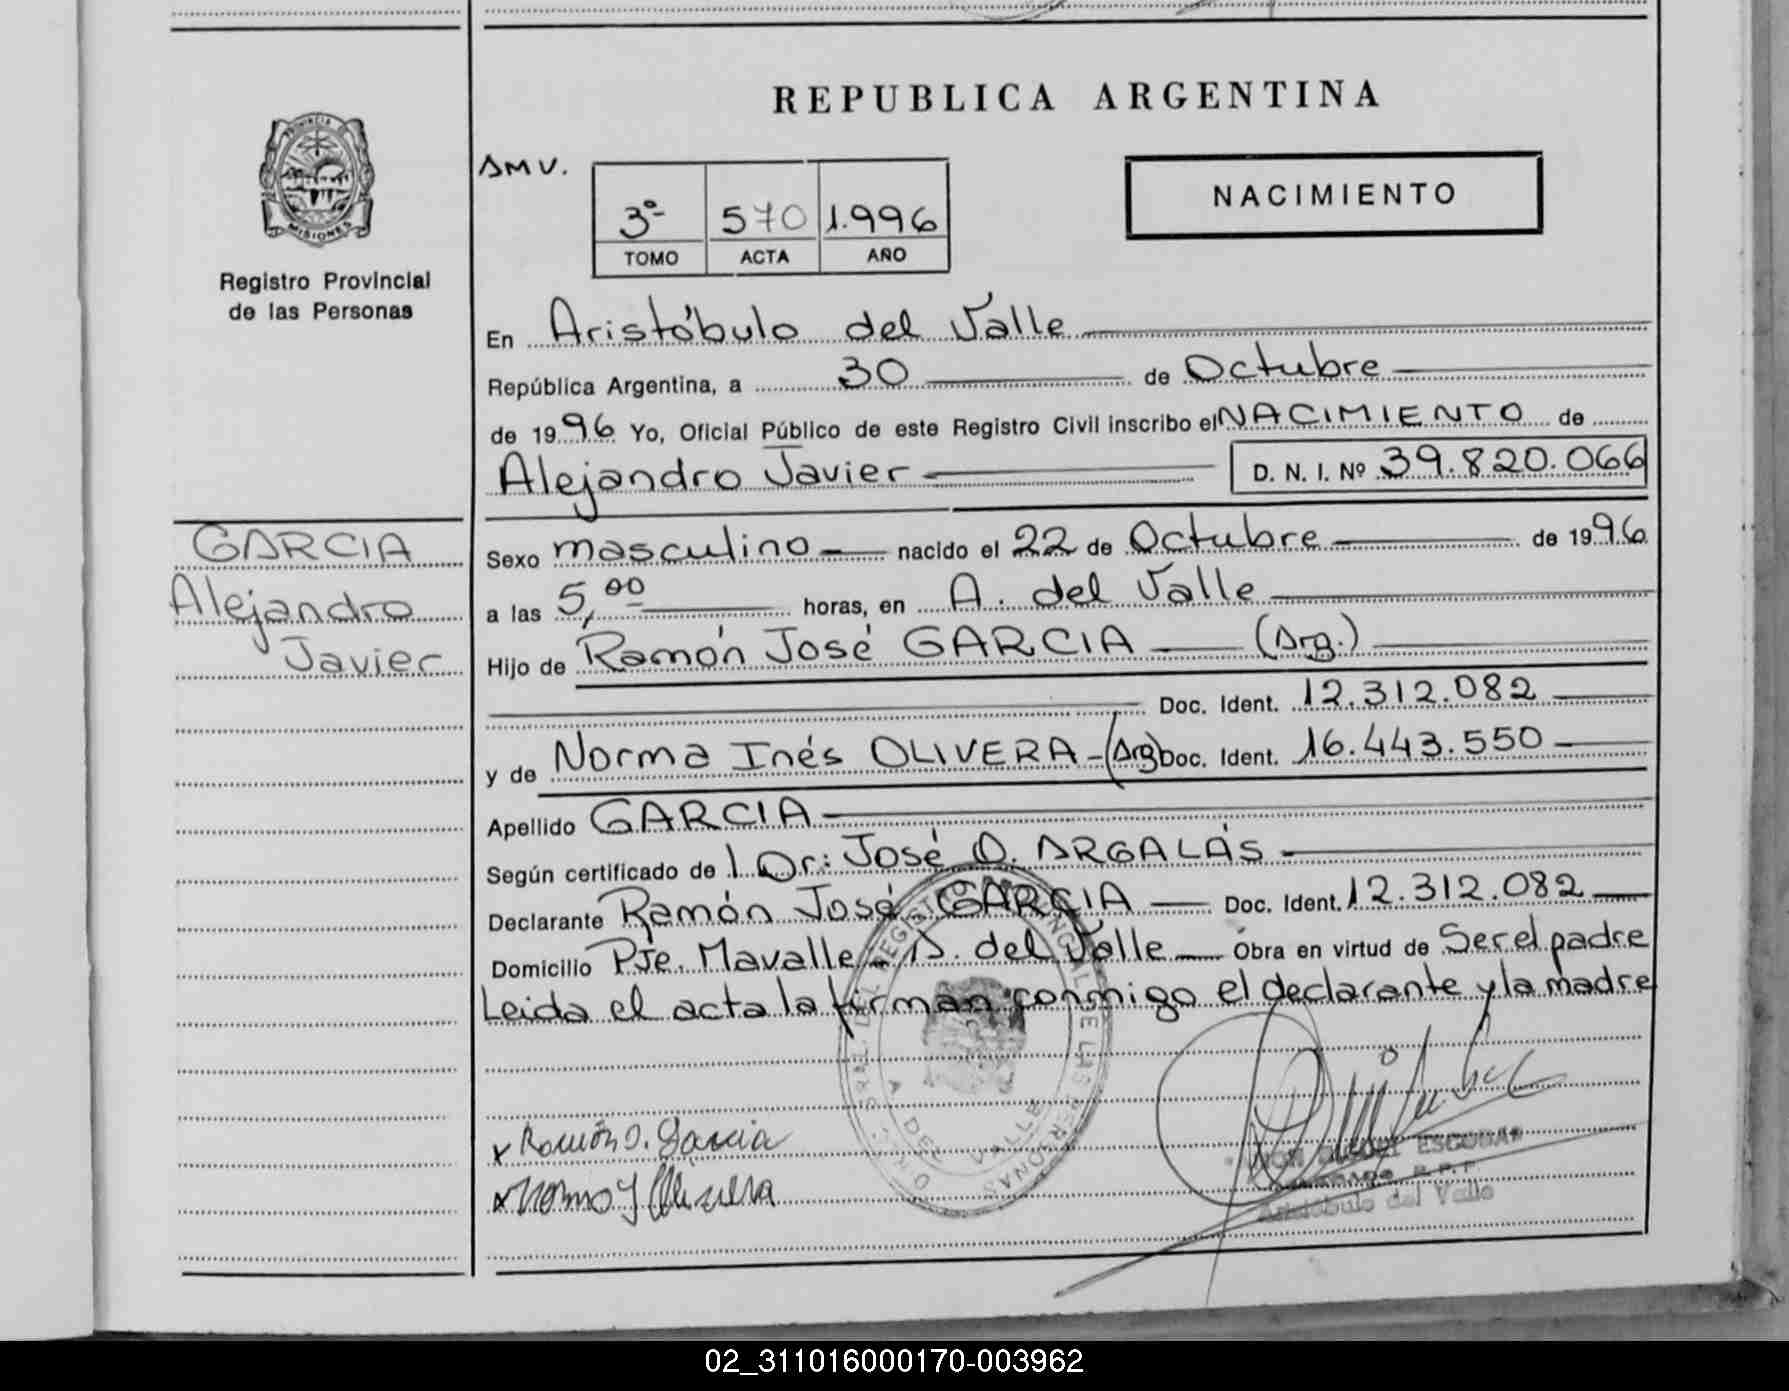 REPUBLICA ARGENTINA
PROVINCIA DE
MISIONES
Registro Provincial
de las Personas
AMV.
3º 570 1.996
TOMO ACTA AÑO
NACIMIENTO
En Aristóbulo del Valle
República Argentina, a 30 de Octubre
de 1996 Yo, Oficial Público de este Registro Civil inscribo el NACIMIENTO de
Alejandro Javier D. N. I. Nº 39.820.066
GARCIA
Alejandro
Javier
Sexo masculino nacido el 22 de Octubre de 1996
a las 5,00 horas, en A. del Valle
Hijo de Ramón José GARCIA (Arg.)
Doc. Ident. 12.312.082
y de Norma Inés OLIVERA - (Arg) Doc. Ident. 16.443.550
Apellido GARCIA
Según certificado de l Dr: José O. ARGALÁS
Declarante Ramón José GARCIA Doc. Ident. 12.312.082
Domicilio Pje. Mavalle - A. del Valle Obra en virtud de Ser el padre
Leida el acta la firman conmigo el declarante y la madre
x Ramón J. Garcia
x Norma I Olivera
A DEL VALLE
ESCOBAR
R.P.P.
Aristóbulo del Valle
02_311016000170-003962